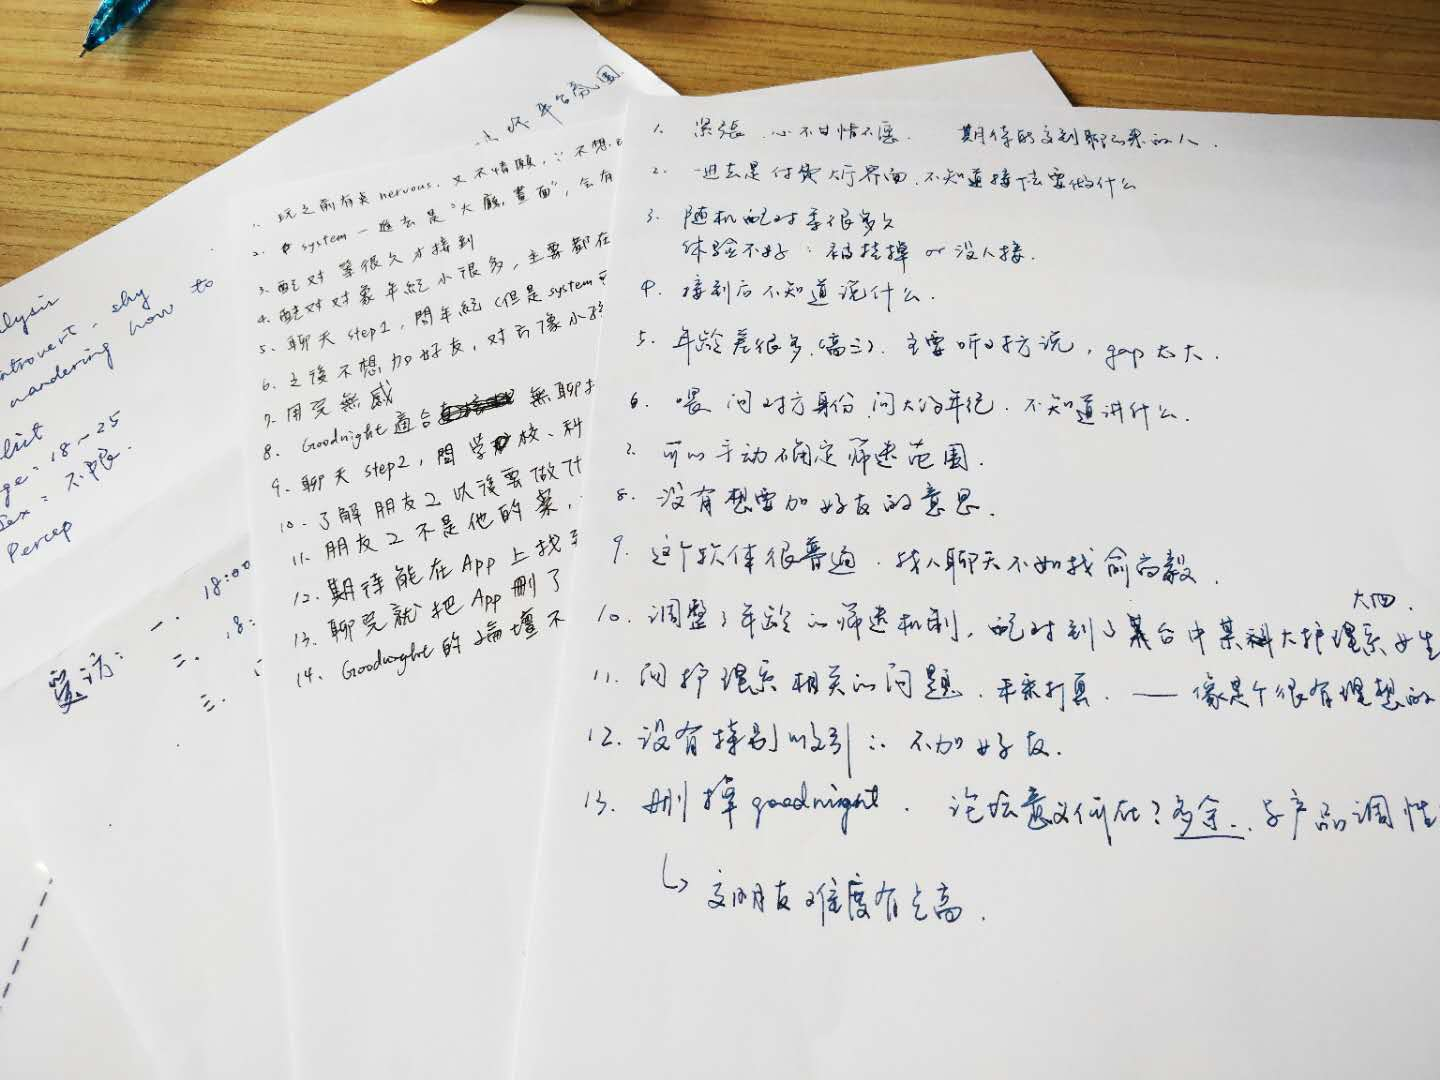 lysis
introvert, shy
wandering how to
age: 18~25
Sex: 不限.
Percep
一、 18:00
二、 18:
三、
1. 玩之前有点 nervous, 又不情願, ∵ 不想
2. system 一進去是 "大廳畫面", 会有
3. 配对等很久才接到
4. 配对对象年紀小很多, 主要都在
5. 聊天 step1, 問年紀 (但是 system
6. 之後不想加好友, 对方像小孩
7. 用完無感
8. Goodnight 適合 無聊
9. 聊天 step2, 問学校、科
10. 了解朋友2 以後要做什
11. 朋友2 不是他的菜,
12. 期待能在 App 上找
13. 聊完就把 App 刪了
14. Goodnight 的論壇不
1. 紧張、心不甘情不愿. 期待能交到聊得来的人.
2. 一进去是付费大厅界面, 不知道接下去要做什么
3. 随机配对等很多久
体验不好: 被挂掉 or 没人接.
4. 接到后不知道说什么.
5. 年龄差很多 (高三). 主要听对方说, gap 太大.
6. 喂 问对方身份, 问大约年纪. 不知道讲什么.
7. 可以手动不确定筛选范围.
8. 没有想要加好友的意思.
9. 这个软体很普通, 找人聊天不如找俞高毅.
大四.
10. 调整了年龄的筛选机制, 配对到了某台中某科大护理系女生
11. 问护理系相关的问题, 年紧打莫. —— 像是个很有理想的
12. 没有特别吸引 ∴ 不加好友.
13. 删掉 goodnight. 论坛意义何在? 多余.. 与产品调性
↳ 交朋友难度有点高.